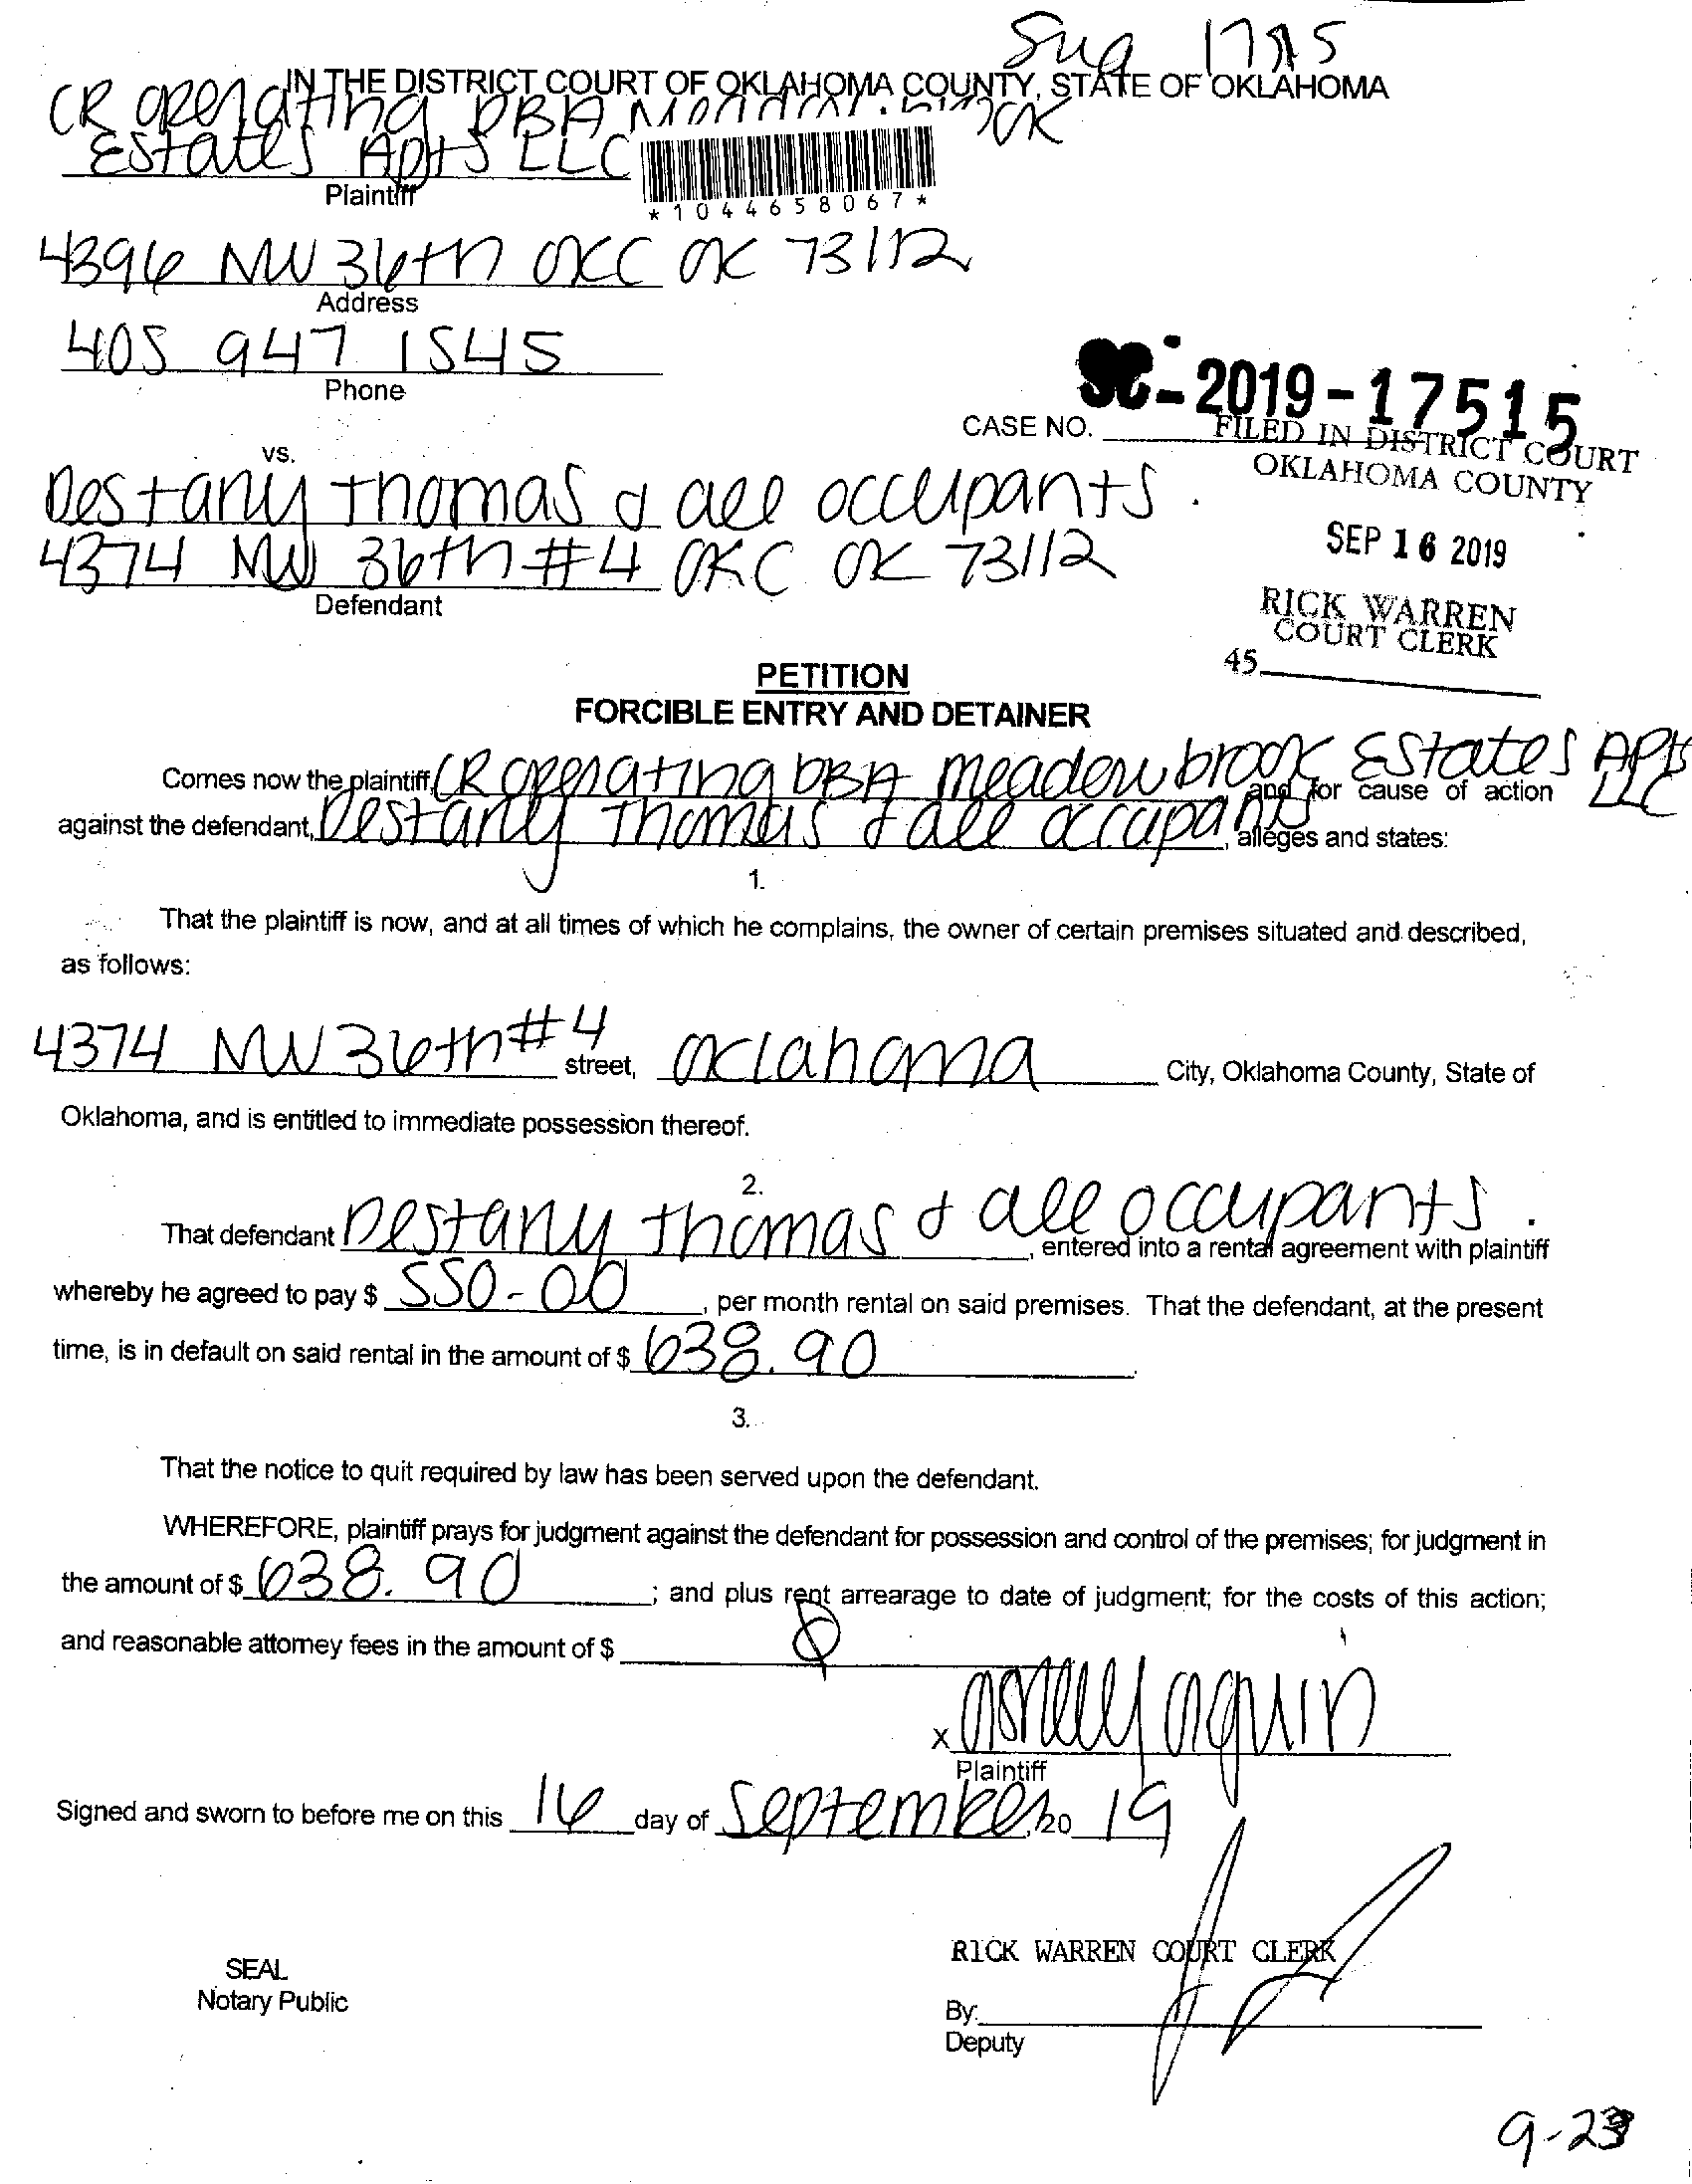 IN THE DISTRICT COURT OF OKLAHOMA COUNTY, STATE OF OKLAHOMA
CR operating DBA Meadowbrook
Estates Apts LLC
Plaintiff
*1044658067*
4396 NW 36th OKC OK 73112
Address
405 947 1545
Phone
SC-2019-17515
CASE NO.
FILED IN DISTRICT COURT
OKLAHOMA COUNTY
vs.
Destany Thomas & all occupants.
4374 NW 36th #4 OKC OK 73112
Defendant
SEP 16 2019
RICK WARREN
COURT CLERK
45
PETITION
FORCIBLE ENTRY AND DETAINER
Comes now the plaintiff, CR operating DBA Meadowbrook Estates Apts LLC and for cause of action
against the defendant, Destany Thomas & all occupants, alleges and states:
1.
That the plaintiff is now, and at all times of which he complains, the owner of certain premises situated and described,
as follows:
4374 NW 36th #4 street, Oklahoma City, Oklahoma County, State of
Oklahoma, and is entitled to immediate possession thereof.
2.
That defendant Destany Thomas & all occupants., entered into a rental agreement with plaintiff
whereby he agreed to pay $ 550-00, per month rental on said premises. That the defendant, at the present
time, is in default on said rental in the amount of $ 638.90.
3.
That the notice to quit required by law has been served upon the defendant.
WHEREFORE, plaintiff prays for judgment against the defendant for possession and control of the premises; for judgment in
the amount of $ 638.90; and plus rent arrearage to date of judgment; for the costs of this action;
and reasonable attorney fees in the amount of $
x
Plaintiff
Signed and sworn to before me on this 16 day of September, 20 19
SEAL
Notary Public
RICK WARREN COURT CLERK
By:
Deputy
9-23